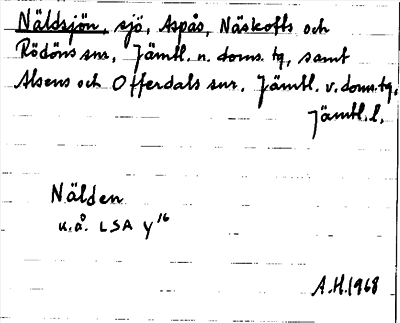 Näldsjön, sjö, Aspås, Näskotts och
Rödöns snr, Jämtl. n. doms. tg, samt
Alsens och Offerdals snr. Jämtl. v. doms. tg,
Jämtl. l.
Nälden
u.å. LSA Y 16
A.H. 1968